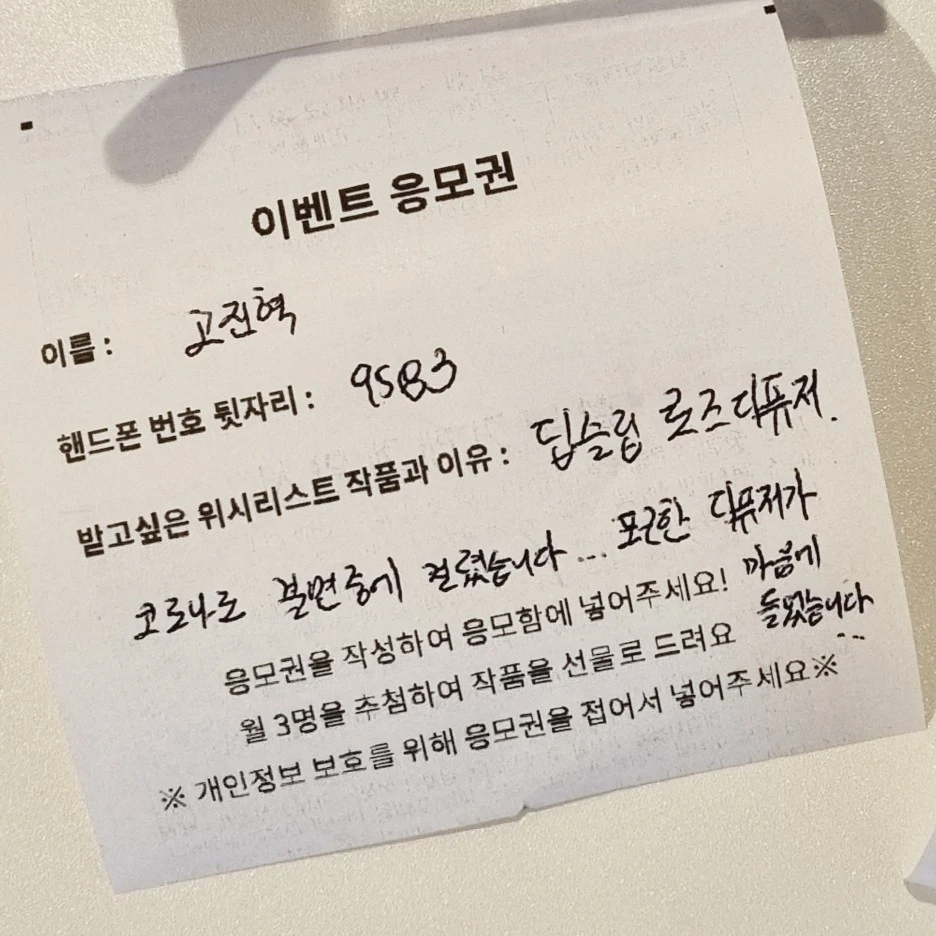 이벤트 응모권
이름 : 고진혁
핸드폰 번호 뒷자리 : 9583
받고싶은 위시리스트 작품과 이유 : 딥슬립 로즈디퓨저.
코로나로 불면증에 걸렸습니다... 포근한 디퓨저가
마음에
들었습니다...
응모권을 작성하여 응모함에 넣어주세요!
월 3명을 추첨하여 작품을 선물로 드려요
※ 개인정보 보호를 위해 응모권을 접어서 넣어주세요※